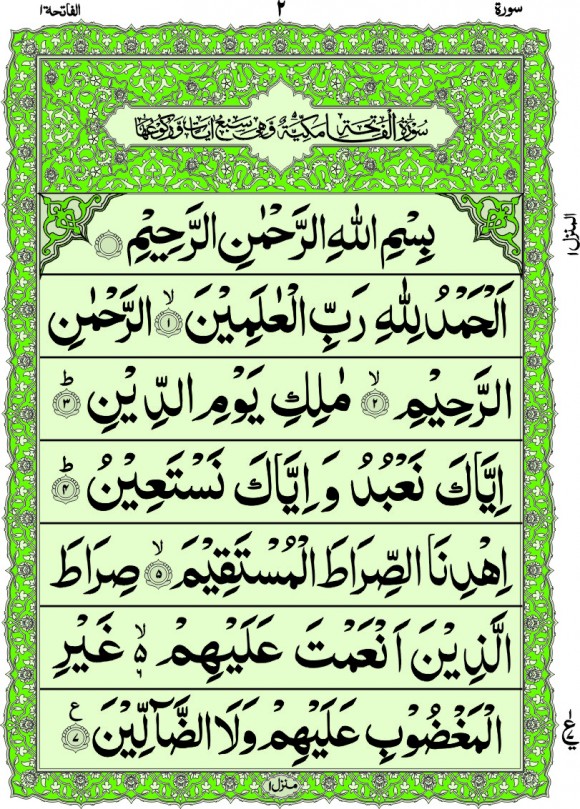 سورة ٢ الفاتحة ١
سُوْرَةُ الْفَاتِحَةِ مَكِّيَّةٌ وَّهِيَ سَبْعُ اٰيَاتٍ وَّرُكُوْعُهَا
بِسْمِ اللّٰهِ الرَّحْمٰنِ الرَّحِيْمِ
اَلْحَمْدُ لِلّٰهِ رَبِّ الْعٰلَمِيْنَ ۙ﴿١﴾ الرَّحْمٰنِ
الرَّحِيْمِ ۙ﴿٢﴾ مٰلِكِ يَوْمِ الدِّيْنِ ؕ﴿٣﴾
اِيَّاكَ نَعْبُدُ وَ اِيَّاكَ نَسْتَعِيْنُ ؕ﴿٤﴾
اِهْدِنَا الصِّرَاطَ الْمُسْتَقِيْمَ ۙ﴿٥﴾ صِرَاطَ
الَّذِيْنَ اَنْعَمْتَ عَلَيْهِمْ ۙ٦ غَيْرِ
الْمَغْضُوْبِ عَلَيْهِمْ وَلَا الضَّآلِّيْنَ ﴿٧﴾ ع
المنزل ١
منزل ١